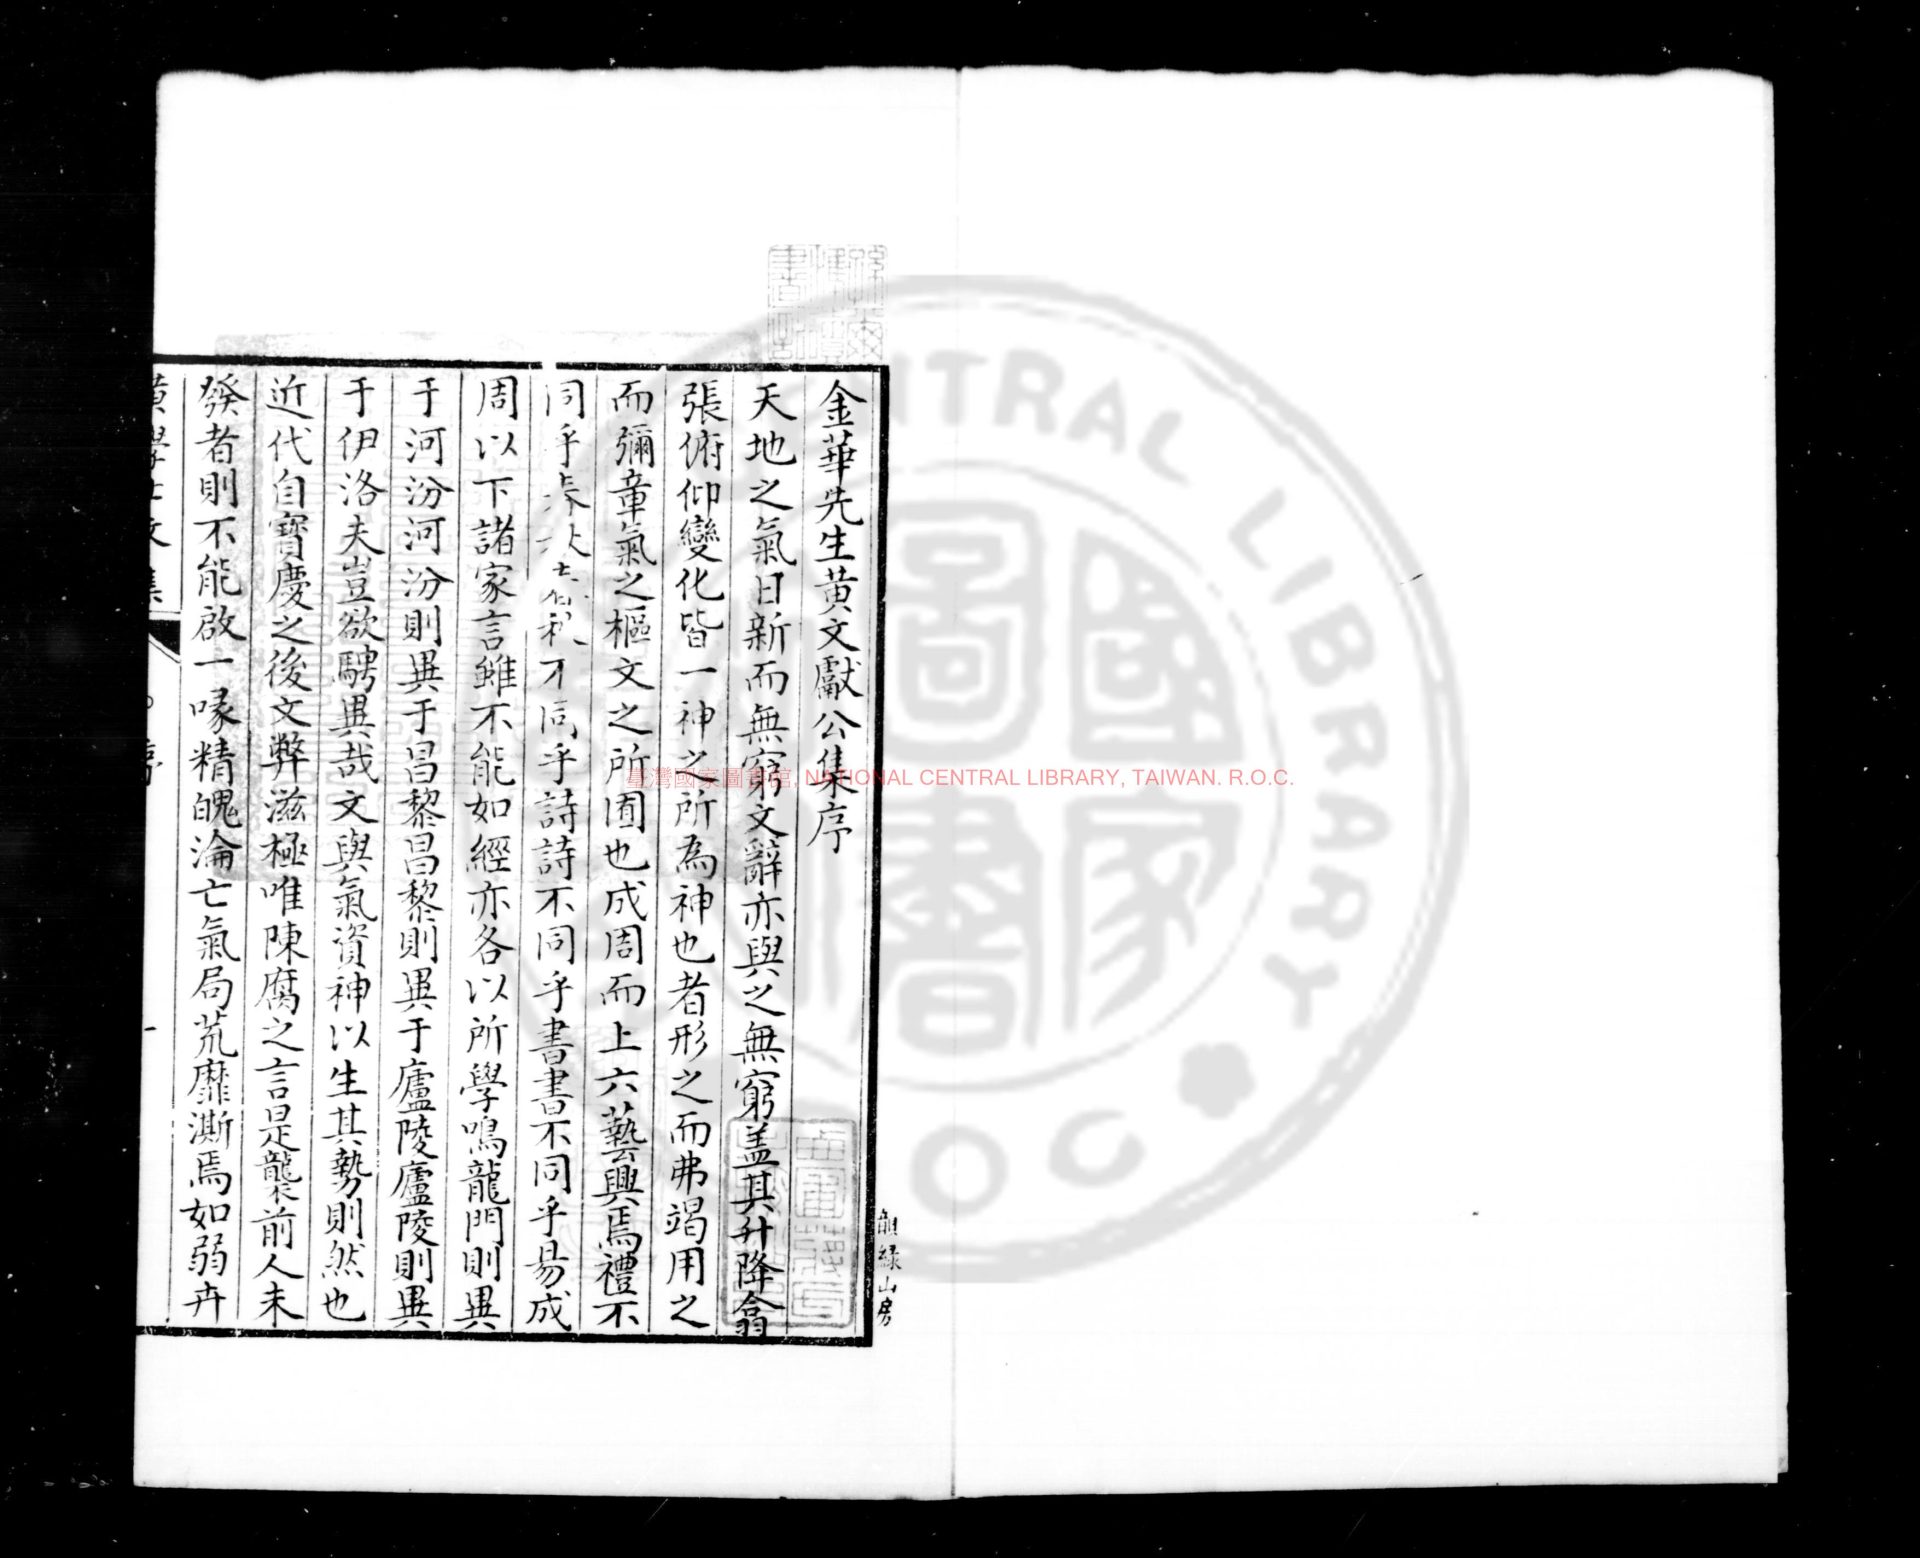 金華先生黃文獻公集序
天地之氣日新而無窮文辭亦與之無窮盖其升降翕
張俯仰變化皆一神之所為神也者形之而弗竭用之
而彌章氣之樞文之所囿也成周而上六藝興焉禮不
同乎春秋春秋不同乎詩詩不同乎書書不同乎易成
周以下諸家言雖不能如經亦各以所學鳴龍門則異
于河汾河汾則異于昌黎昌黎則異于廬陵廬陵則異
于伊洛夫豈欲騁異哉文與氣資神以生其勢則然也
近代自寶慶之後文弊滋極唯陳腐之言是襲前人未
發者則不能啟一喙精魄淪亡氣局荒靡澌焉如弱卉
黃學士文集
序
一
韻緑山房
臺灣國家圖書館, NATIONAL CENTRAL LIBRARY, TAIWAN. R.O.C.
CENTRAL LIBRARY
國家圖書
R.O.C.